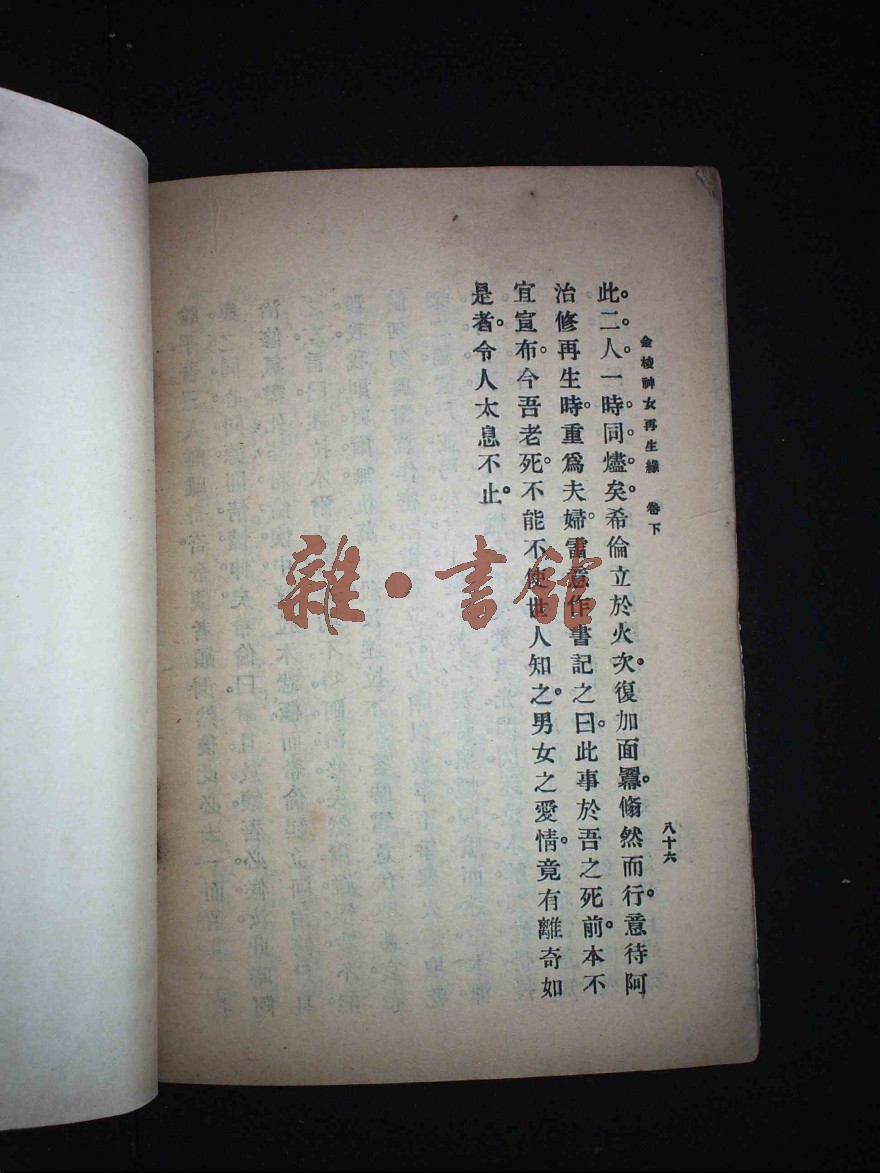 金梭神女再生緣 卷下
八十六
此。二。人。一時。同。燼。矣。希倫立於火次。復加面羃。翛然而行。意待阿
治修再生時。重爲夫婦。雷意作書記之曰。此事於吾之死前。本不
宜宣布。今吾老死。不能不使世人知之。男女之愛情。竟有離奇如
是者。令人太息不止。
雜·書館